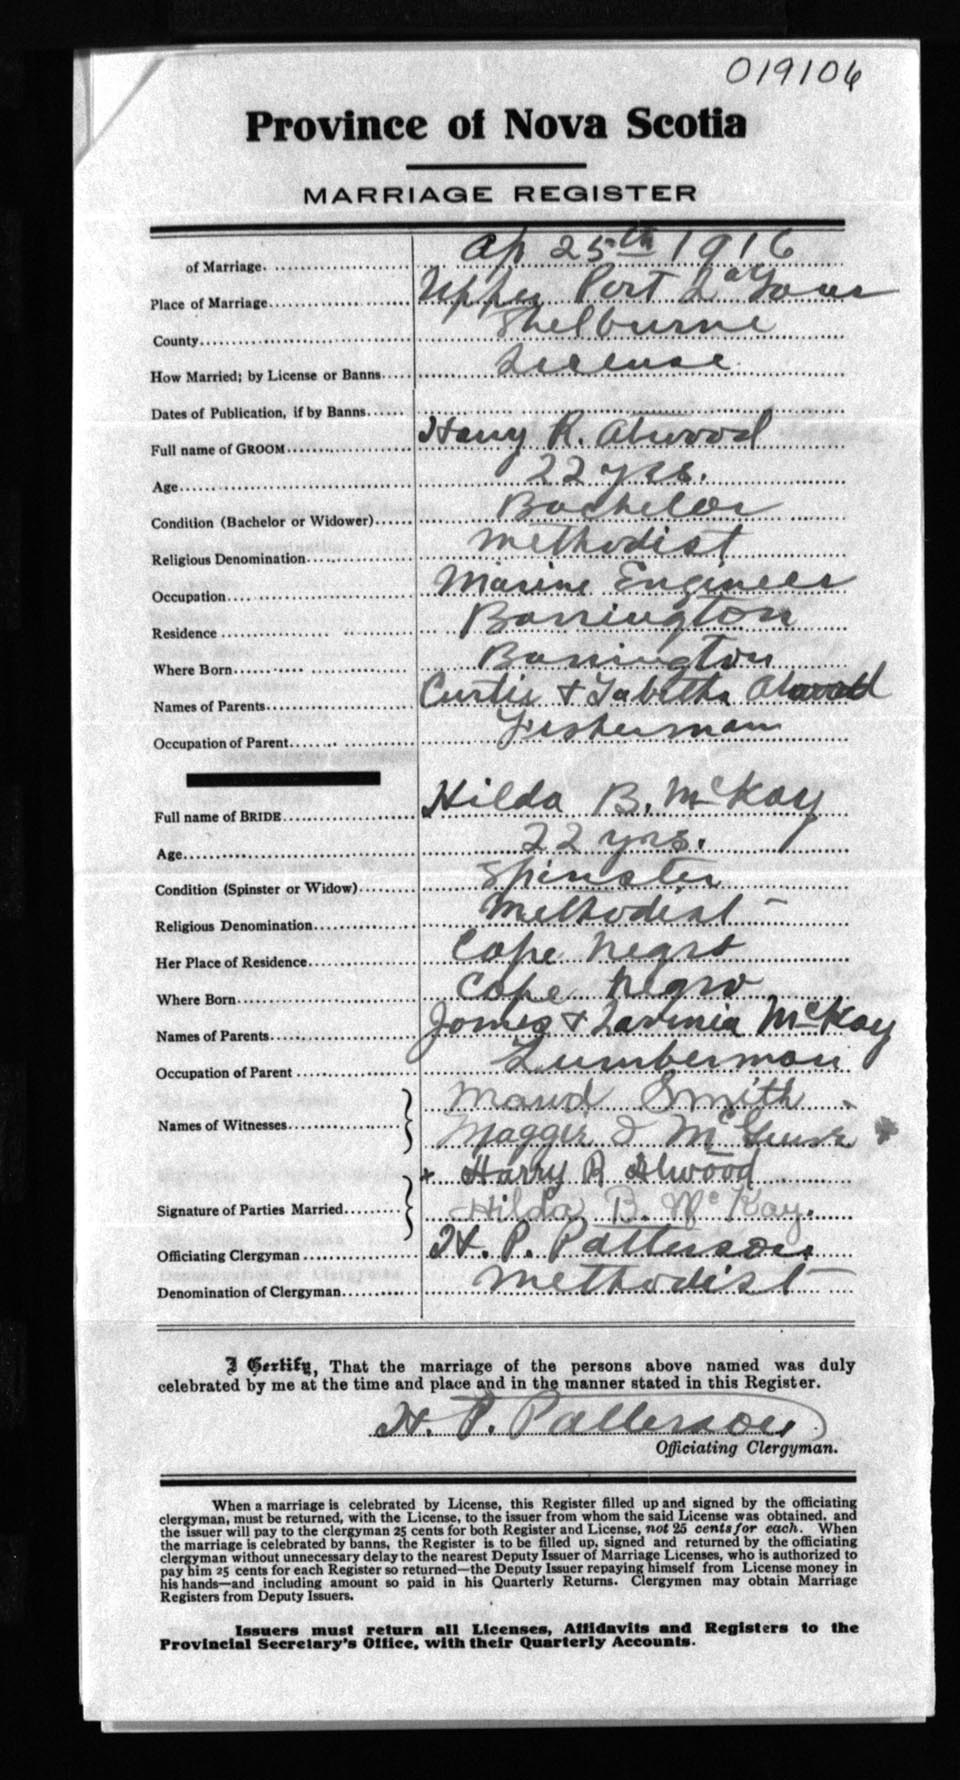 019106
Province of Nova Scotia
MARRIAGE REGISTER
of Marriage. Ap 25th 1916
Place of Marriage Upper Port La Tour
County Shelburne
How Married; by License or Banns License
Dates of Publication, if by Banns
Full name of GROOM Harry R. Atwood
Age 22 yrs.
Condition (Bachelor or Widower) Bachelor
Religious Denomination Methodist
Occupation Marine Engineer
Residence Barrington
Where Born Barrington
Names of Parents Curtis & Tabitha Atwood
Occupation of Parent Fisherman
Full name of BRIDE Hilda B. McKay
Age 22 yrs.
Condition (Spinster or Widow) Spinster
Religious Denomination Methodist
Her Place of Residence Cape Negro
Where Born Cape Negro
Names of Parents James & Lavinia McKay
Occupation of Parent Lumberman
Names of Witnesses Maud Smith
Maggie
Signature of Parties Married Harry R Atwood
Hilda B. McKay.
Officiating Clergyman H. P. Patterson
Denomination of Clergyman Methodist
I Certify, That the marriage of the persons above named was duly
celebrated by me at the time and place and in the manner stated in this Register.
H. P. Patterson
Officiating Clergyman.
When a marriage is celebrated by License, this Register filled up and signed by the officiating
clergyman, must be returned, with the License, to the issuer from whom the said License was obtained, and
the issuer will pay to the clergyman 25 cents for both Register and License, not 25 cents for each. When
the marriage is celebrated by banns, the Register is to be filled up, signed and returned by the officiating
clergyman without unnecessary delay to the nearest Deputy Issuer of Marriage Licenses, who is authorized to
pay him 25 cents for each Register so returned—the Deputy Issuer repaying himself from License money in
his hands—and including amount so paid in his Quarterly Returns. Clergymen may obtain Marriage
Registers from Deputy Issuers.
Issuers must return all Licenses, Affidavits and Registers to the
Provincial Secretary's Office, with their Quarterly Accounts.